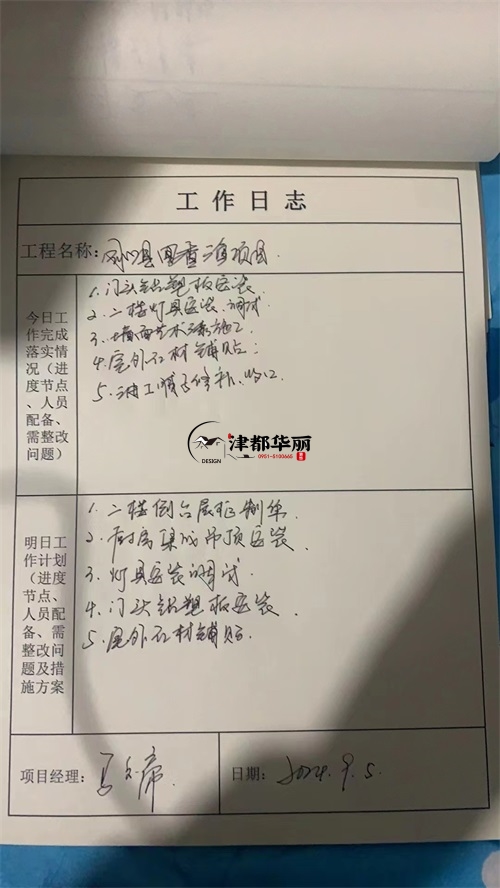 工作日志
工程名称：
今日工作完成落实情况（进度节点、人员配备、需整改问题）
1. 门头铝塑板安装
2. 二楼灯具安装、调试
3. 墙面艺术漆施工
4. 屋外石材铺贴
5. 油工
津都华丽
DESIGN
0951-5100665
明日工作计划（进度节点、人员配备、需整改问题及措施方案
1. 二楼
2. 厨房集成吊顶安装
3. 灯具安装调试
4. 门头铝塑板安装
5. 屋外石材铺贴
项目经理：
日期：2024.9.5.